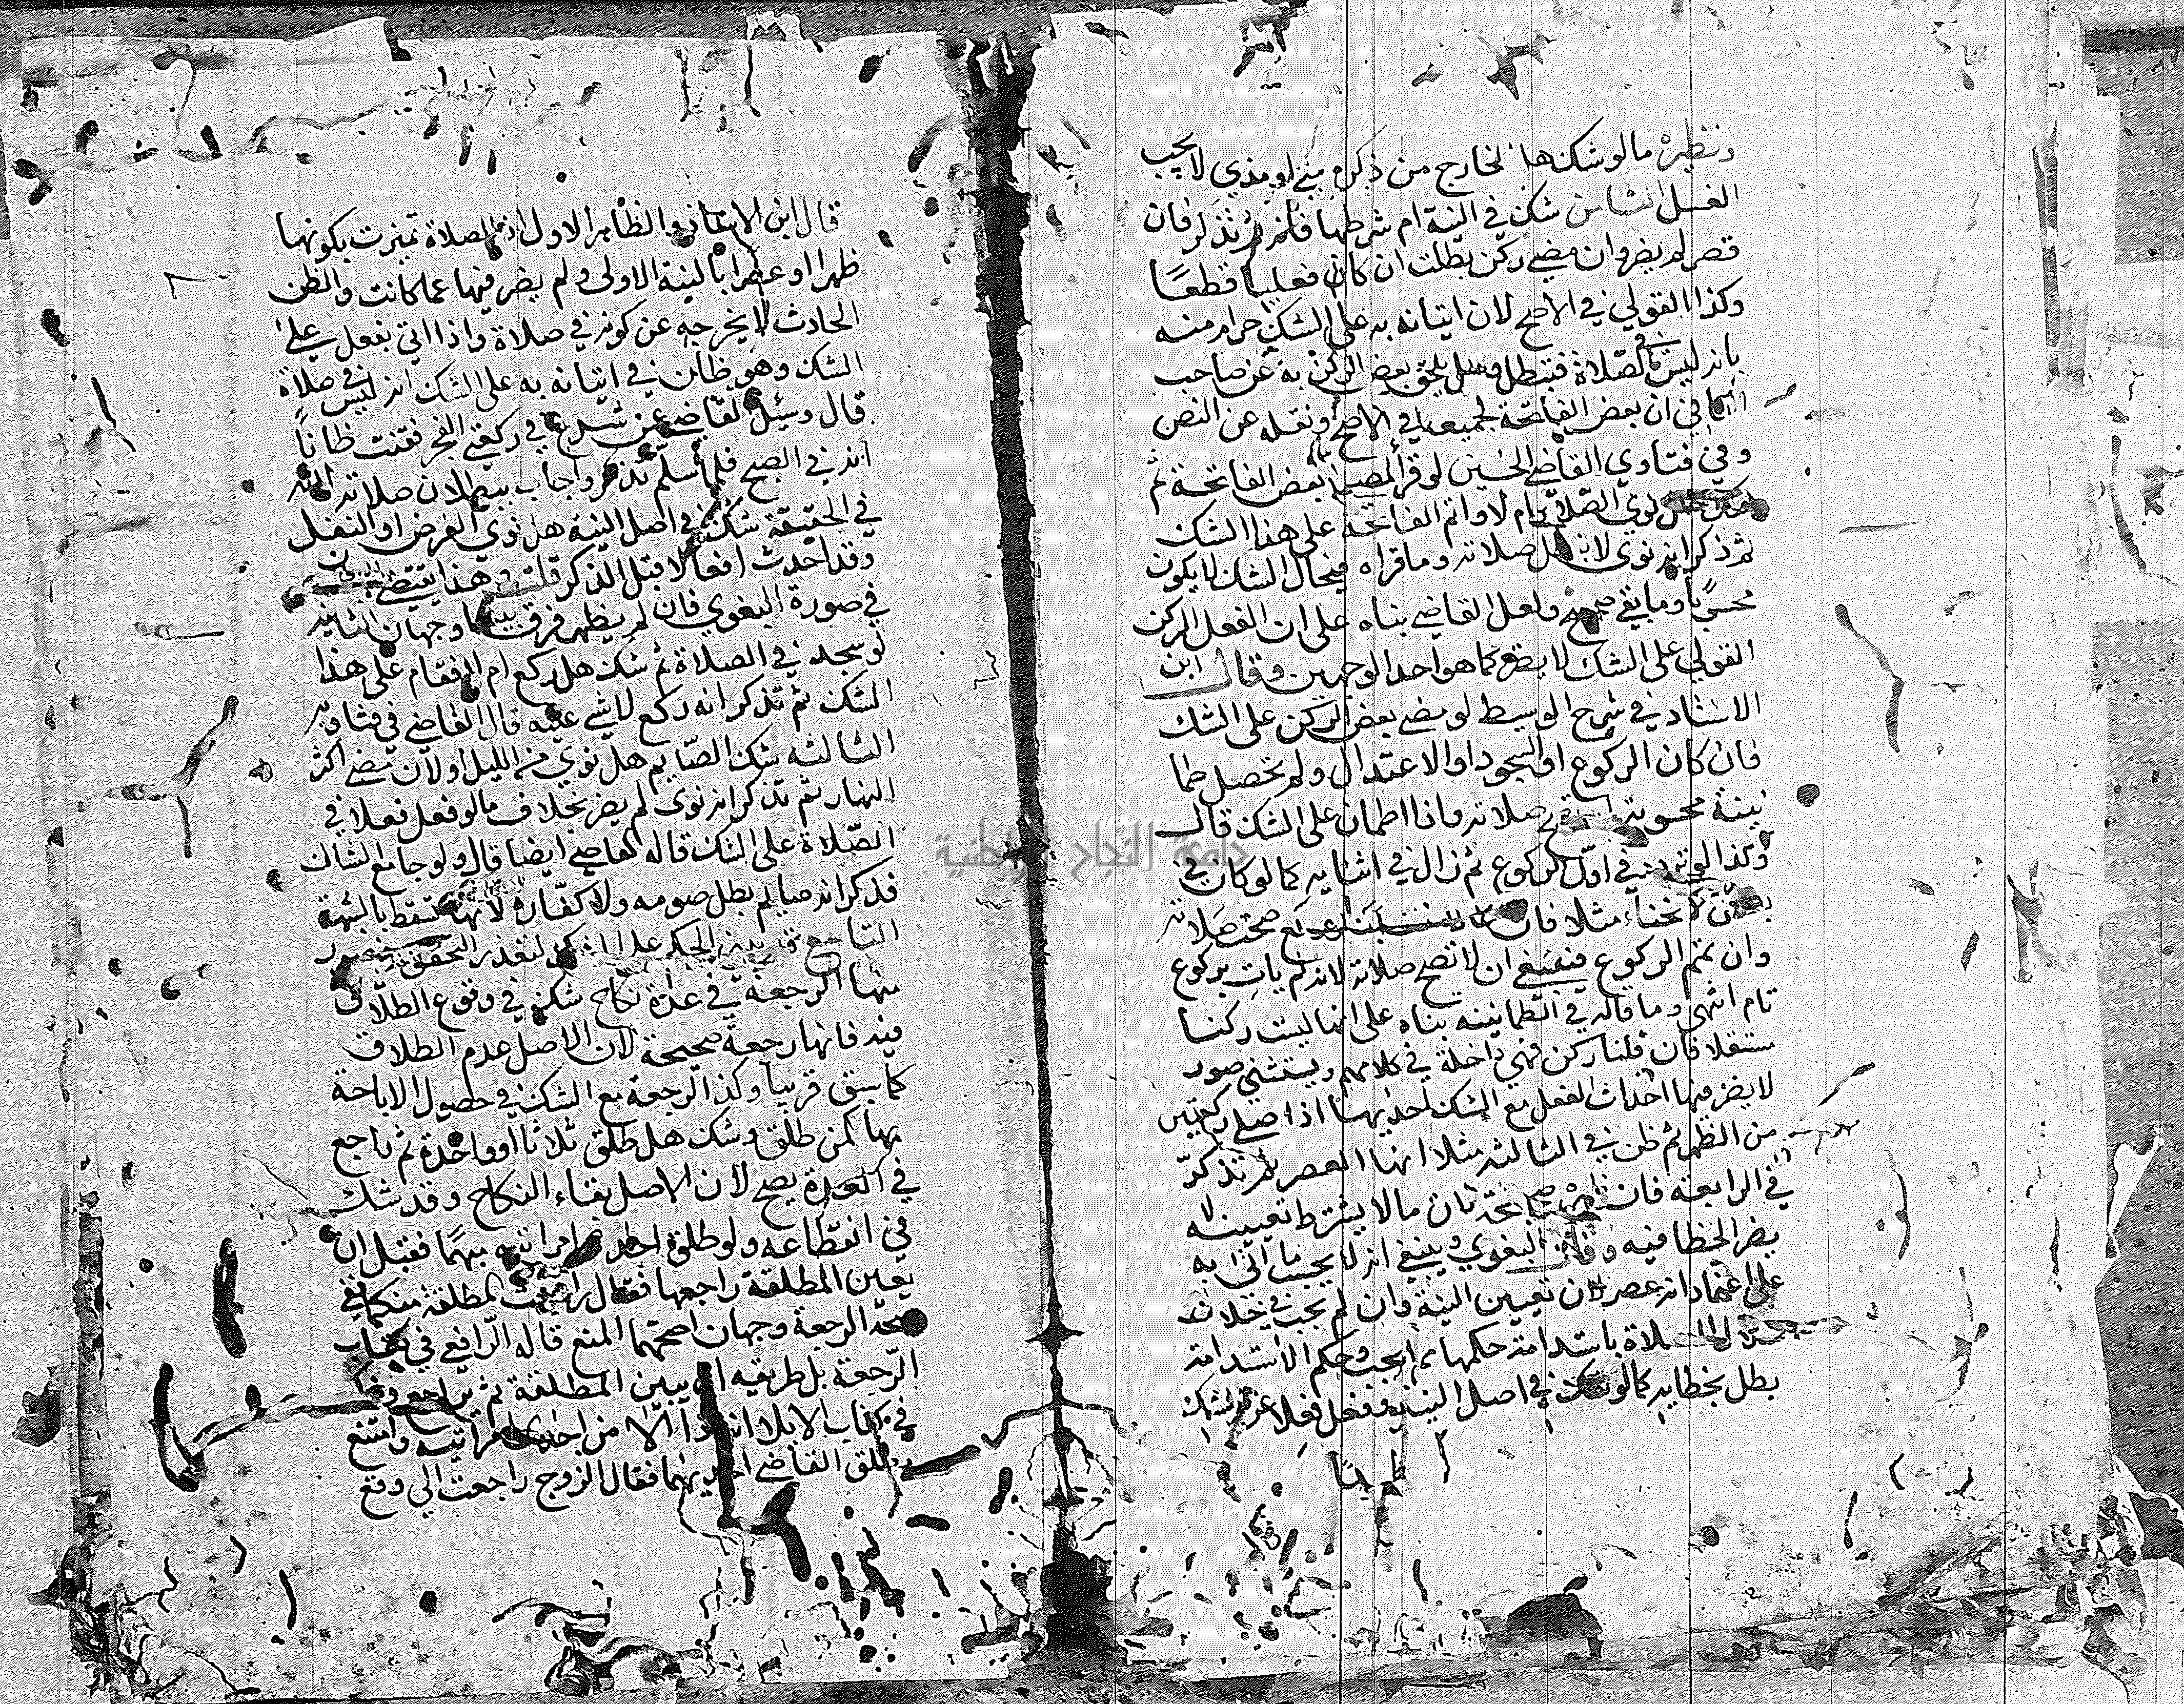 ونظيره مالوشك هل الخارج من ذكره مني او مذي لا يجب
الغسل الثامن شك في النية ام شرطها فانه لم تذكر فان
قصر لم يضر وان مضى ركن بطلت ان كان فعليا قطعًا
وكذا القولي في الاصح لان اتيانه به على الشك حرام منه
بانه ليس في الصلاة فتبطل وهل يلحق بعض الركن به عن صاحب
الكافي ان بعض الفاتحة لجميعها في الاصح ونقله عن النص
وفي فتاوي القاضي الحسين لو قرأ المصلي بعض الفاتحة ثم
شك هل نوى الصلاة ام لا واتم الفاتحة على هذا الشك
ثم ذكر انه نوى لا تبطل صلاته وما قراه في حال الشك لا يكون
محسوبا وما بقي صحيح ولعل القاضي بناه على ان الفعل الركن
القولي على الشك لا يضر كما هو احد الوجهين وقال ابن
الاستاد في شرح الوسيط لو مضى بعض الركن على الشك
فان كان الركوع او السجود او الاعتدال ولم تحصل طما
نينة محسوبة صلاته واذا اطمان على الشك قال
وكذا لو في اول الركوع ثم زال في اثنايه كما لو كان في
الانحناء مثلا فان صحت صلاته
وان تمم الركوع فينبغي ان لا تصح صلاته لانه لم يات بركوع
تام انتهى وما قاله في الطمانينه بناه على انها ليست ركنا
مستقلا فان قلنا ركن فهي داخلة في كلامهم ويستثنى صور
لا يضر فيها احداث الفعل مع الشك احديها اذا صلى ركعتين
من الظهر ثم ظن في الثالثه مثلا انها العصر ثم تذكر
في الرابعة فان صحت لان ما لا يشترط تعيينه لا
يضر الخطا فيه وقال البغوي وينبغي انه لا يحسب ما اتى به
على اعتماد انه عصر لان تعيين النية وان لم يجب في خلال
الصلاة باستدامة حكمها يجب وحكم الاستدامة
بطل بخطايه كما لو شك في اصل النية ففعل فعلا على الشك
قال ابن الاستاذ والظاهر الاول اذ الصلاة تميزت بكونها
ظهرا او عصرا بالنية الاولى ولم يضر فيها عما كانت والظن
الحادث لا يخرجه عن كونه في صلاة واذا اتى بفعل على
الشك وهو ظان في اتيانه به على الشك انه ليس في صلاة
قال وسئل القاضي عن شرع في ركعتي الفجر فقنت ظانًا
انه في الصبح فلما سلم تذكر واجاب ببطلان صلاته لانه
في الحقيقة شك في اصل النية هل نوى الفرض او النفل
وقد احدث افعالا قبل الذكر قلت وهذا يقتضي
في صورة البغوي فان لم يظهر فرق بينهما وجهان الثانيه
لو سجد في الصلاة ثم شك هل ركع ام لا فقام على هذا
الشك ثم تذكر انه ركع لا شي عليه قال القاضي في فتاويه
الثالثه شك الصايم هل نوى من الليل او لان مضى اكثر
النهار ثم تذكر انه نوى لم يضر بخلاف مالو فعل فعلا في
الصلاة على الشك قاله القاضي ايضا قال ولو جامع الشاك
فذكر انه صايم بطل صومه ولا كفارة لانها تسقط بالشبهة
التاسع الحكم على الشك لتعذر التحقق صور
منها الرجعة في عدة نكاح شك في وقوع الطلاق
فيه فانها رجعة صحيحة لان الاصل عدم الطلاق
كما سبق قريبا وكذا الرجعة مع الشك في حصول الاباحة
بها كمن طلق وشك هل طلق ثلاثا او واحدة ثم راجع
في العدة يصح لان الاصل بقاء النكاح وقد شك
في انقطاعه ولو طلق احدى امراتيه مبهما فقبل ان
يعين المطلقة راجعها فقال راجعت المطلقة منكما ففي
صحة الرجعة وجهان اصحهما المنع قاله الرافعي في كتاب
الرجعة بل طريقه ان يبين المطلقة ثم يراجع
في كتاب الايلا انه اذا الا من احدى امراتيه وامتنع
وطلق القاضي احديهما فقال الزوج راجعت التي وقع
جامعة النجاح الوطنية